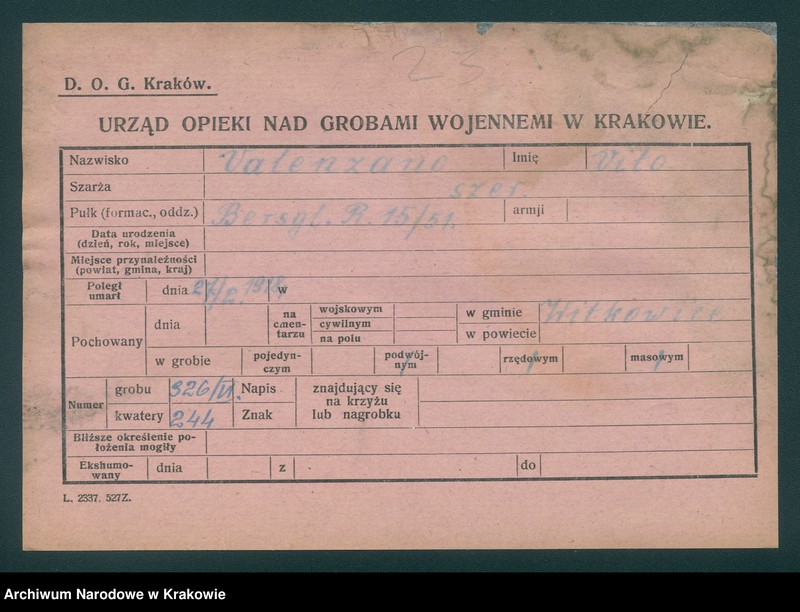 23
D. O. G. Kraków.
URZĄD OPIEKI NAD GROBAMI WOJENNEMI W KRAKOWIE.
Nazwisko Valenzano Imię Vito
Szarża szer.
Pułk (formac., oddz.) Bersgl. R. 15/51. armji
Data urodzenia
(dzień, rok, miejsce)
Miejsce przynależności
(powiat, gmina, kraj)
Poległ
umarł dnia 27/2. 1918, w
Pochowany dnia na cmentarzu wojskowym cywilnym na polu w gminie Witkowice w powiecie
w grobie pojedynczym podwójnym rzędowym masowym
Numer grobu 326/VI. Napis znajdujący się
na krzyżu
kwatery 244 Znak lub nagrobku
Bliższe określenie po-
łożenia mogiły
Ekshumo-
wany dnia z do
L. 2337. 527Z.
Archiwum Narodowe w Krakowie